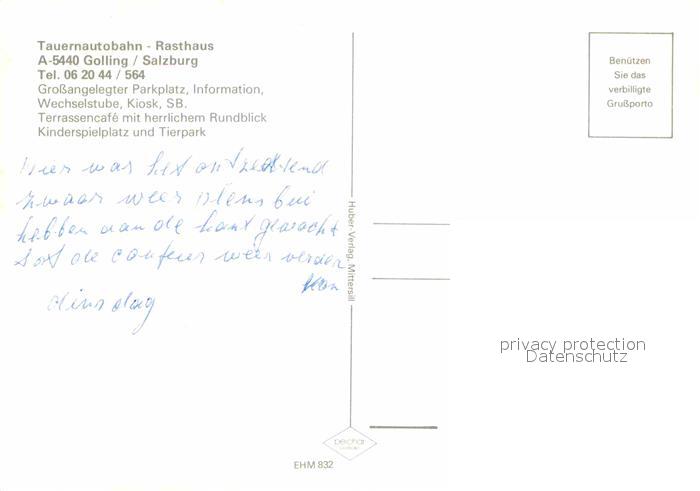 Tauernautobahn - Rasthaus
A-5440 Golling / Salzburg
Tel. 06 20 44 / 564
Großangelegter Parkplatz, Information,
Wechselstube, Kiosk, SB.
Terrassencafé mit herrlichem Rundblick
Kinderspielplatz und Tierpark
Benützen
Sie das
verbilligte
Grußporto
Hier was het ontzettend
zwaar weer
hebben aan de kant gewacht
tot de weer verder
kon
dinsdag
Huber-Verlag, Mittersill
privacy protection
Datenschutz
EHM 832